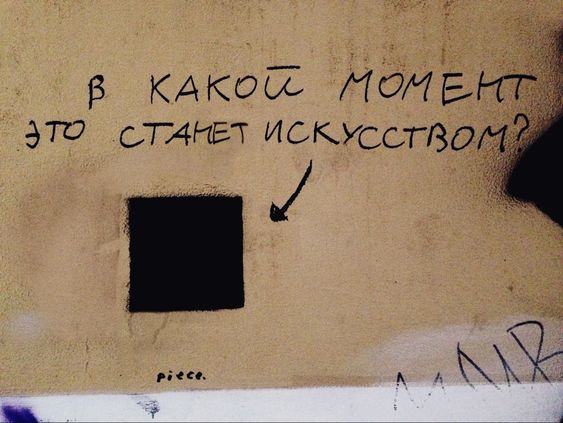 В КАКОЙ МОМЕНТ
ЭТО СТАНЕТ ИСКУССТВОМ?
piece.